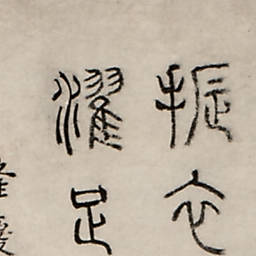 振衣
濯足